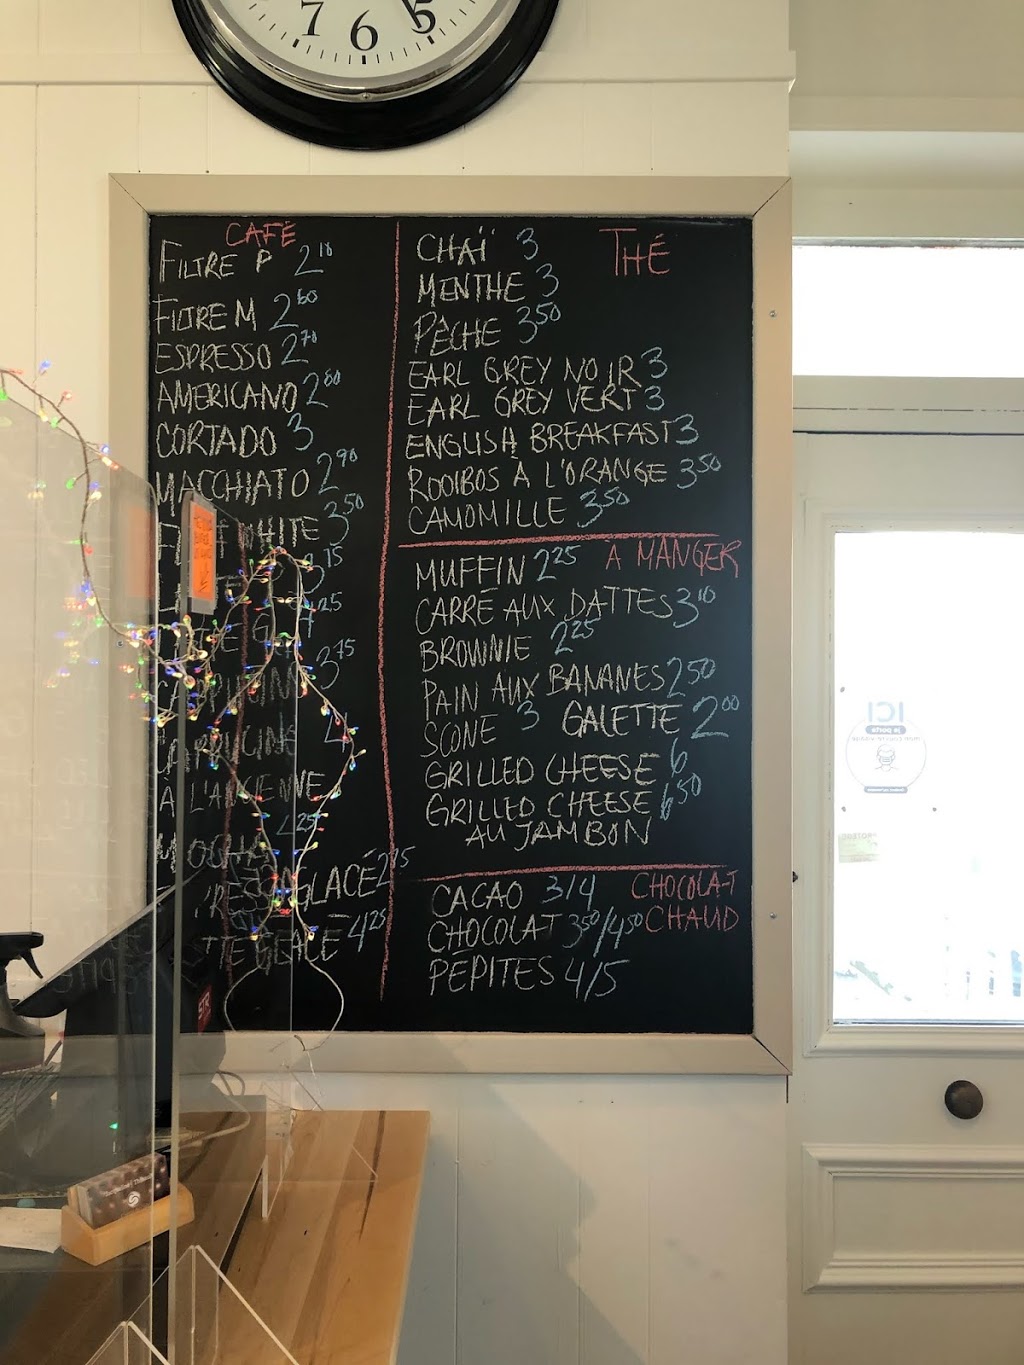 7 6 5
CAFÉ
FILTRE P 2.10
FILTRE M 2.60
ESPRESSO 2.70
AMERICANO 2.80
CORTADO 3
MACCHIATO 2.90
WHITE 3.50
3.75
4.25
CAPPUCINO 3.75
4
À L'ANCIENNE
MOCHA 4.25
GLACÉ 2.75
GLACÉ 4.25
THÉ
CHAÏ 3
MENTHE 3
PÊCHE 3.50
EARL GREY NOIR 3
EARL GREY VERT 3
ENGLISH BREAKFAST 3
ROOIBOS À L'ORANGE 3.50
CAMOMILLE 3.50
À MANGER
MUFFIN 2.25
CARRÉ AUX DATTES 3.10
BROWNIE 2.25
PAIN AUX BANANES 2.50
SCONE 3 GALETTE 2.00
GRILLED CHEESE 6
GRILLED CHEESE 6.50
AU JAMBON
CHOCOLAT
CHAUD
CACAO 3/4
CHOCOLAT 3.50/4.50
PÉPITES 4/5
ICI
je porte